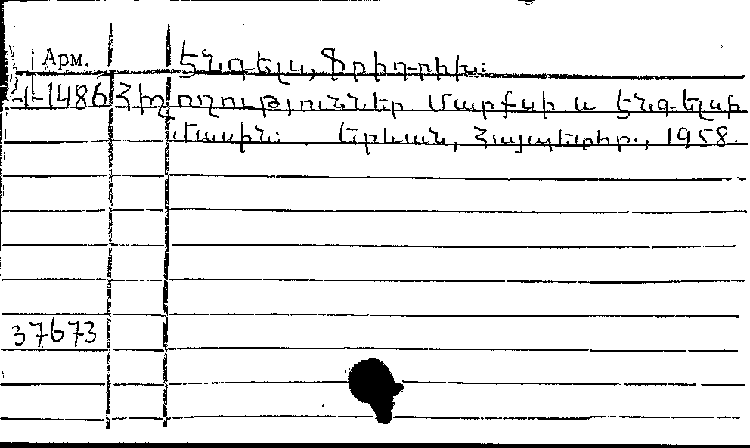 Арм.
Էնգելս, Ֆրիդրիխ:
1-1486 Հիշողություններ Մարքսի և Էնգելսի
մասին: Երևան, Հայպետհր., 1958.
37673